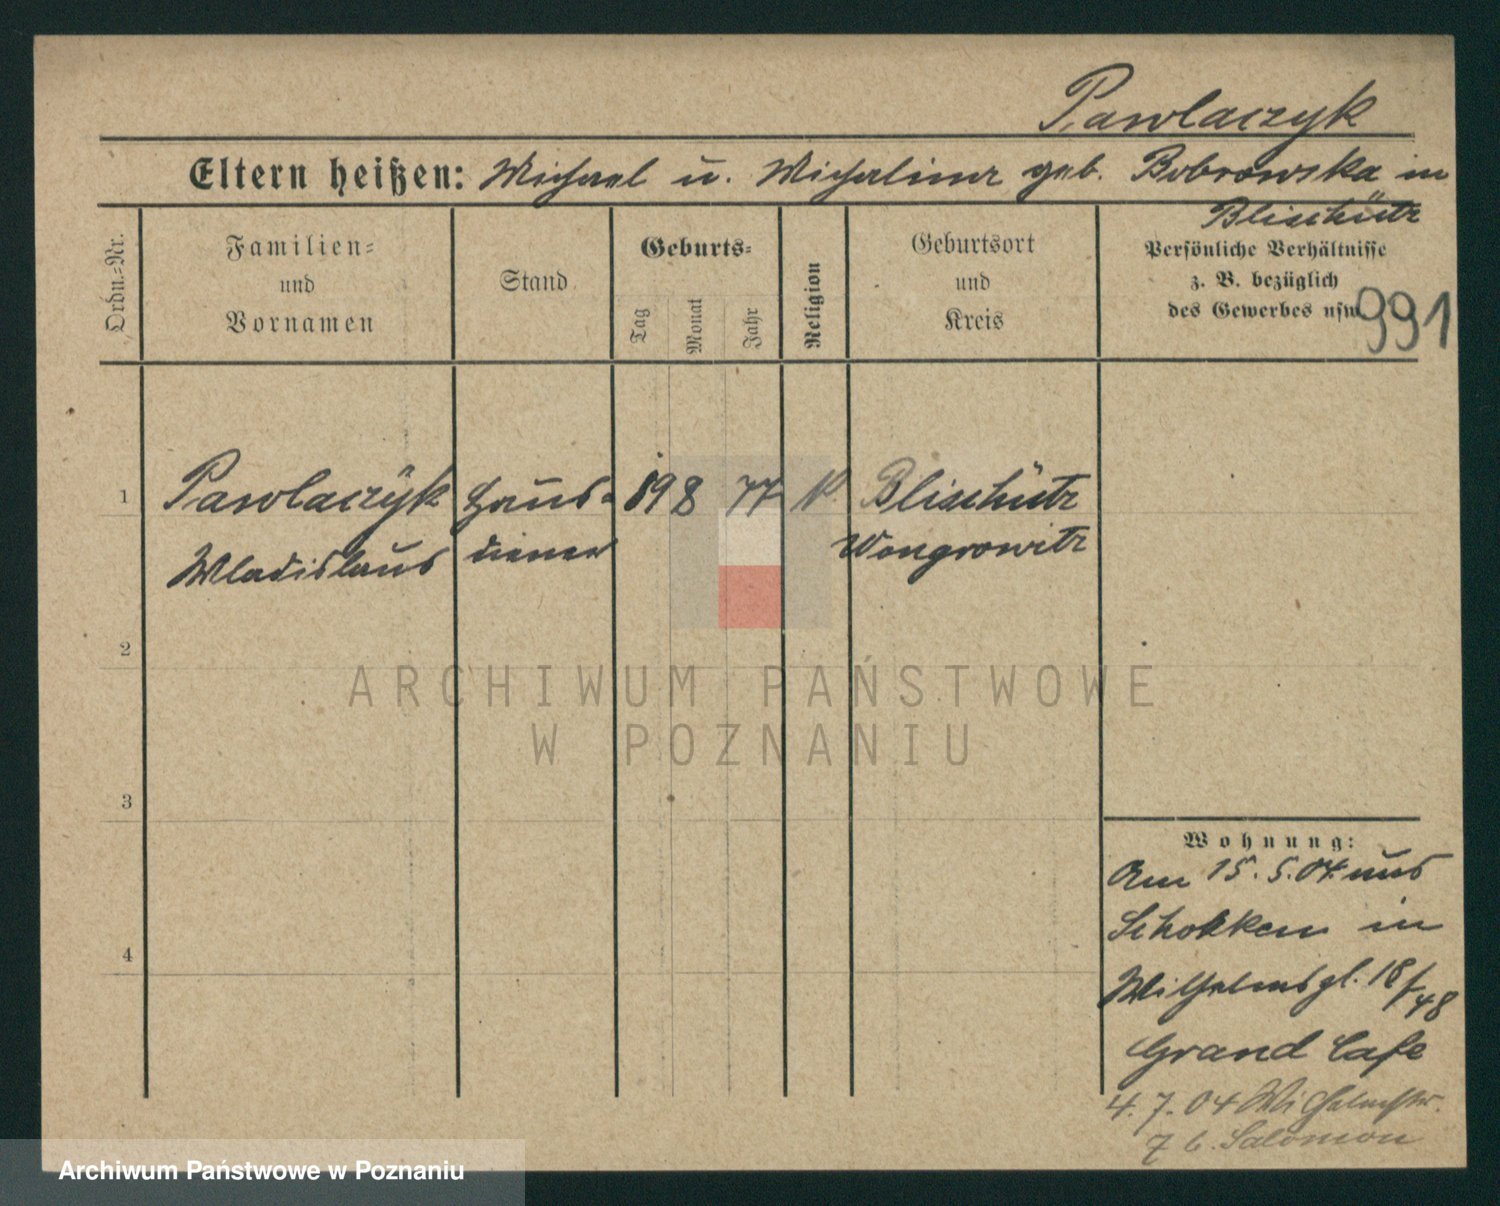 Pawlaczyk
Eltern heißen: Michael u. Michalina geb. Bobrowska in
Blischütz
Ordn.=Nr.
Familien=
und
Vornamen
Stand
Geburts=
Tag
Monat
Jahr
Religion
Geburtsort
und
Kreis
Persönliche Verhältnisse
z. B. bezüglich
des Gewerbes usw.
991
1
Pawlaczÿk Haus= 19 8 77 K Blischütz
Wladislaus diener Wongrowitz
2
3
4
Wohnung:
Am 15.5.04 aus
Schokken in
Wilhelmspl. 18/
48
Grand Cafe
4.7.04 Wilhelmstr.
7 b. Salomon
ARCHIWUM PAŃSTWOWE
W POZNANIU
Archiwum Państwowe w Poznaniu